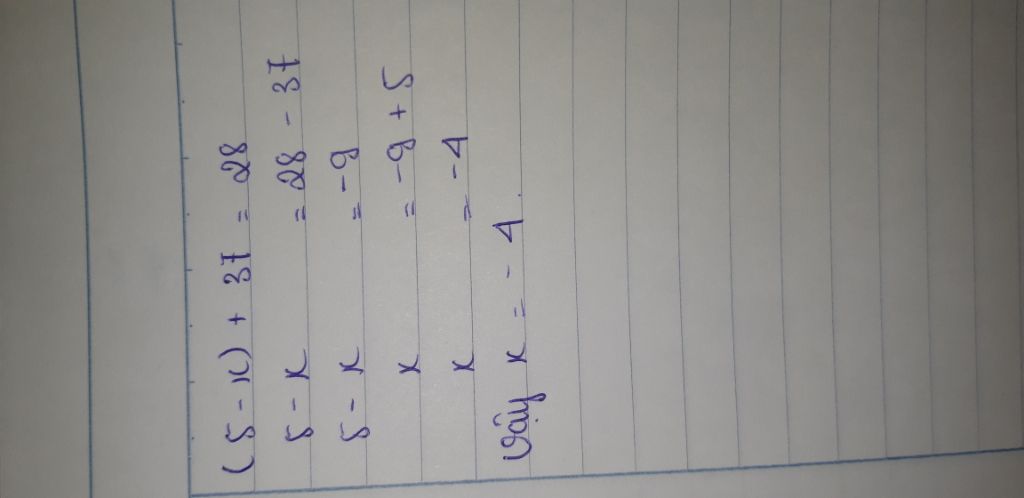 (5 - x) + 37 = 28
5 - x = 28 - 37
5 - x = -9
x = -9 + 5
x = -4
Vậy x = -4.